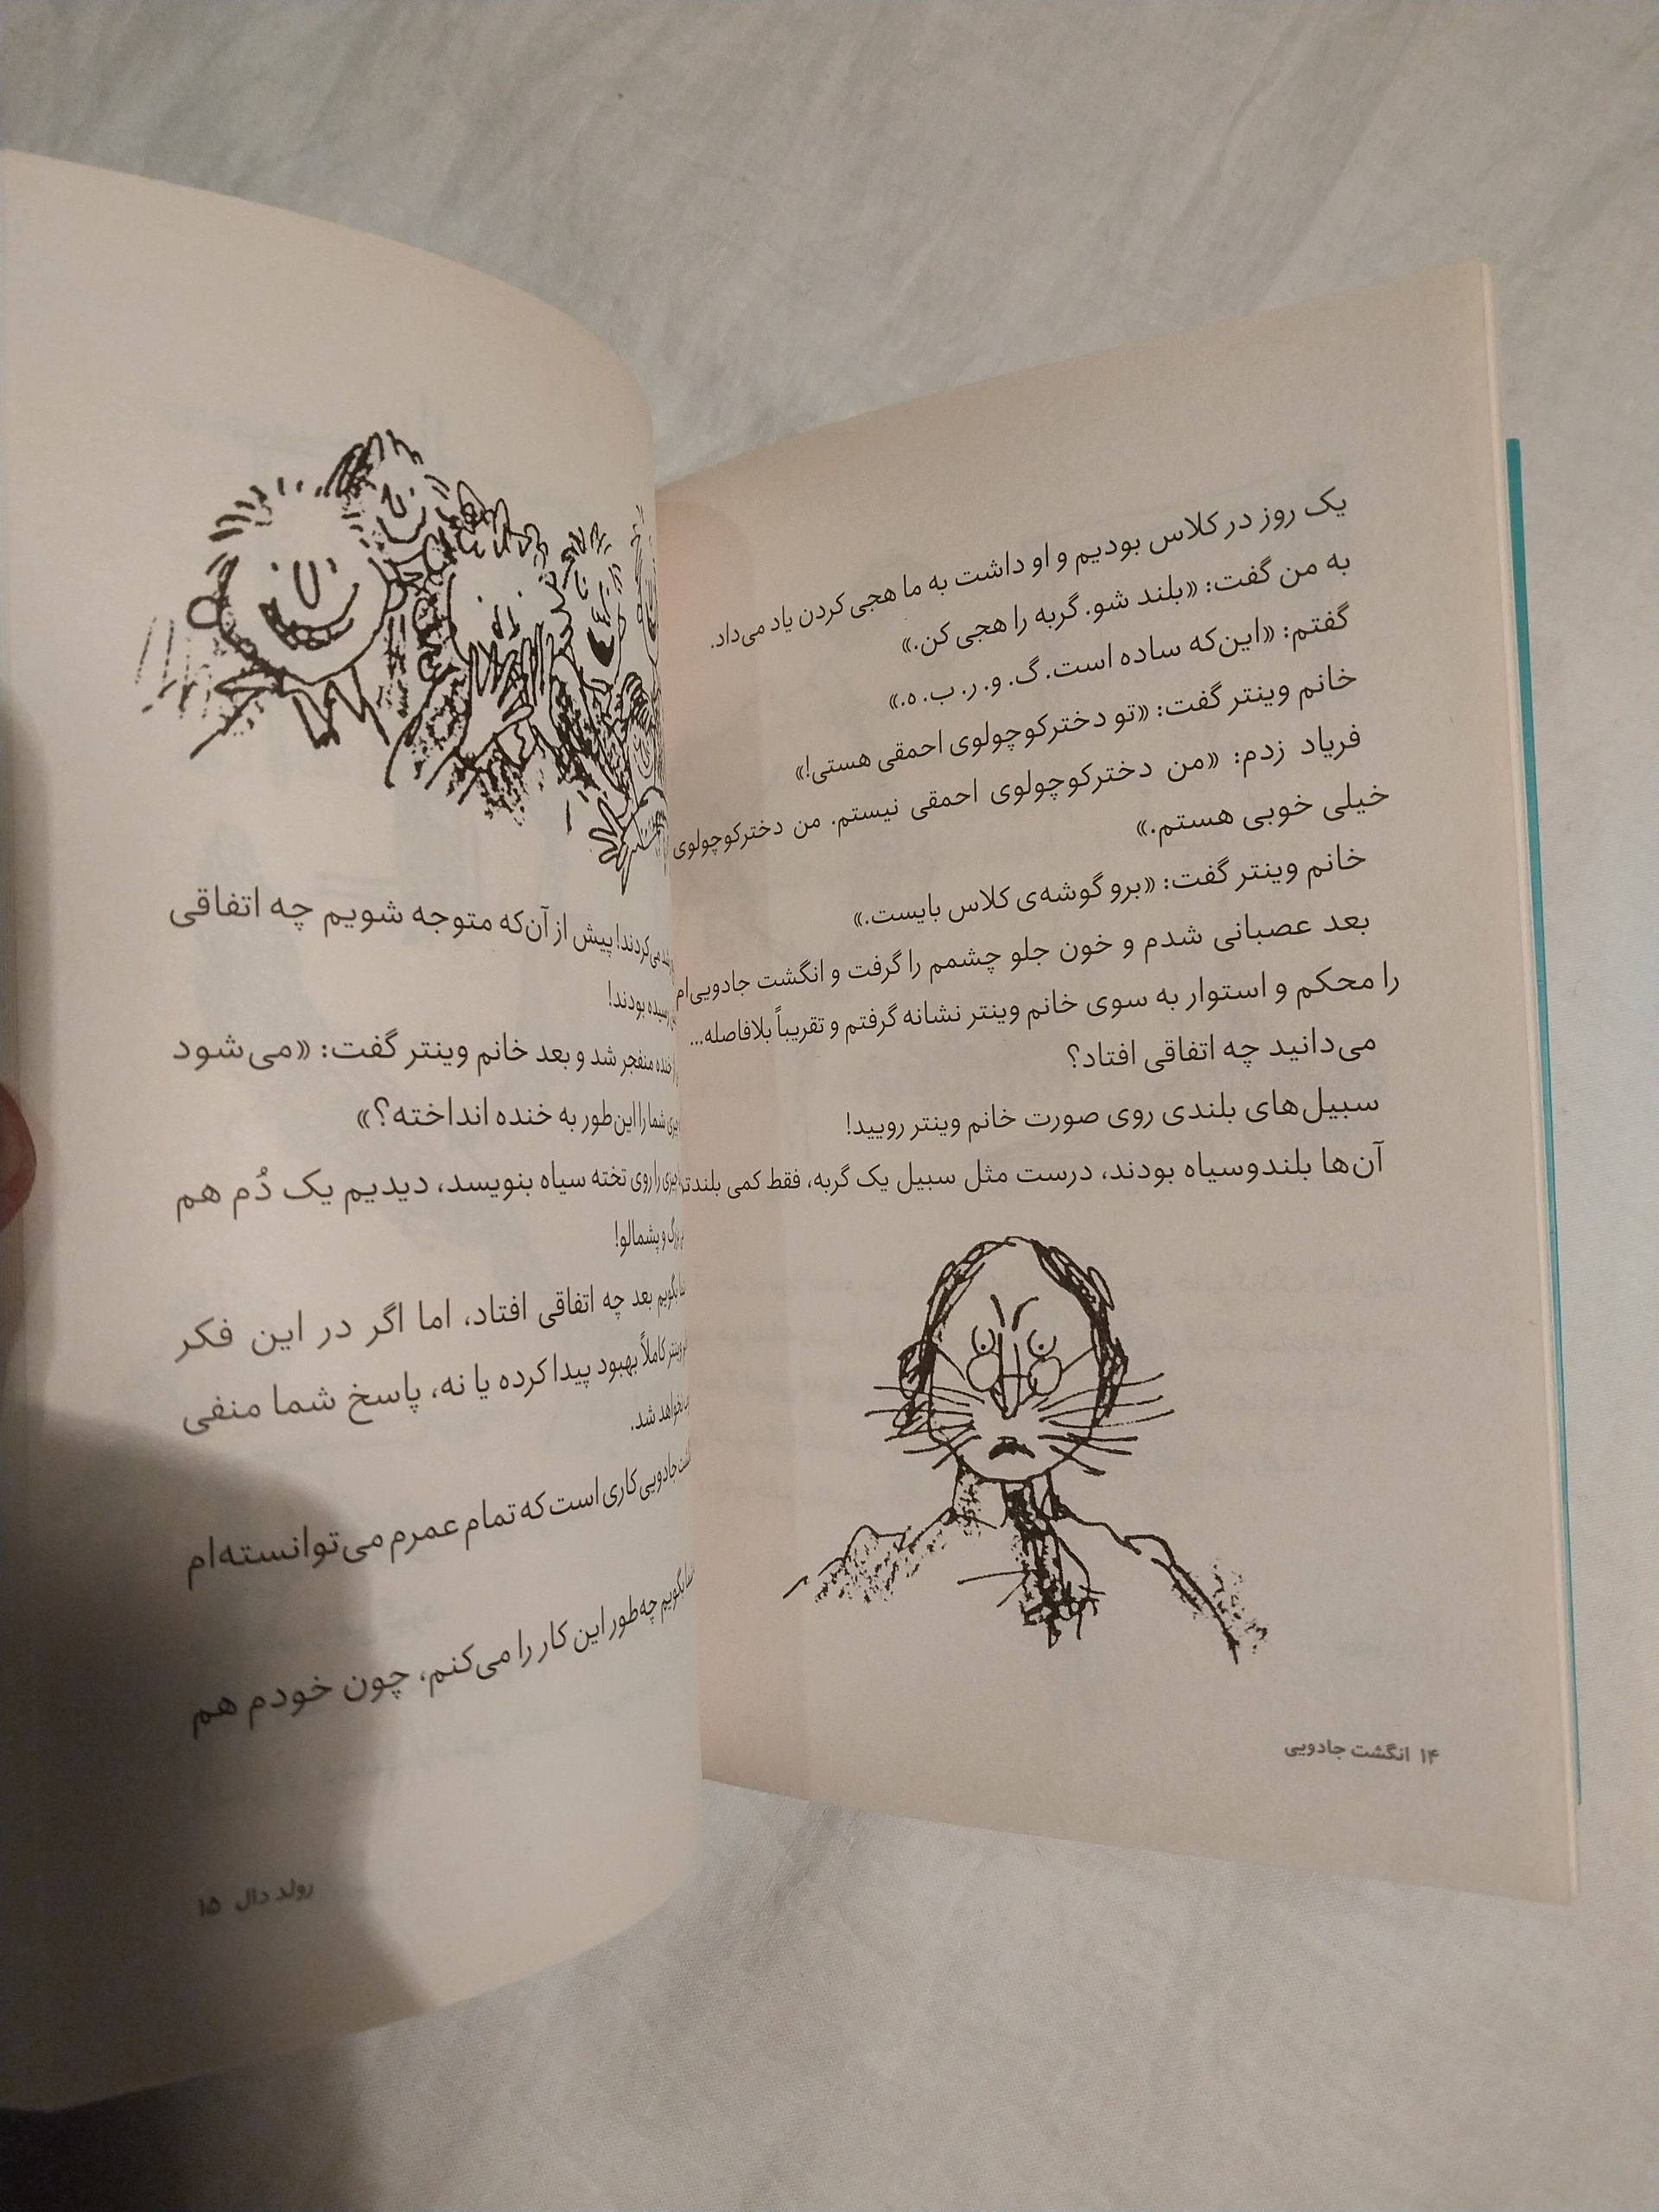 یک روز در کلاس بودیم و او داشت به ما هجی کردن یاد می‌داد.
به من گفت: «بلند شو. گربه را هجی کن.»
گفتم: «این‌که ساده است. گ. و. ر. ب. ه.»
خانم وینتر گفت: «تو دخترکوچولوی احمقی هستی!»
فریاد زدم: «من دخترکوچولوی احمقی نیستم. من دخترکوچولوی
خیلی خوبی هستم.»
خانم وینتر گفت: «برو گوشه‌ی کلاس بایست.»
بعد عصبانی شدم و خون جلو چشمم را گرفت و انگشت جادویی‌ام
را محکم و استوار به سوی خانم وینتر نشانه گرفتم و تقریباً بلافاصله...
می‌دانید چه اتفاقی افتاد؟
سبیل‌های بلندی روی صورت خانم وینتر رویید!
آن‌ها بلندوسیاه بودند، درست مثل سبیل یک گربه، فقط کمی بلندتر
۱۴ انگشت جادویی
می‌کردند! پیش از آن‌که متوجه شویم چه اتفاقی
رسیده بودند!
خنده منفجر شد و بعد خانم وینتر گفت: «می‌شود
شما را این‌طور به خنده انداخته؟»
را روی تخته سیاه بنویسد، دیدیم یک دُم هم
و پشمالو!
بگویم بعد چه اتفاقی افتاد، اما اگر در این فکر
وینتر کاملاً بهبود پیدا کرده یا نه، پاسخ شما منفی
نخواهد شد.
جادویی کاری است که تمام عمرم می‌توانسته‌ام
بگویم چه‌طور این کار را می‌کنم، چون خودم هم
رولد دال ۱۵